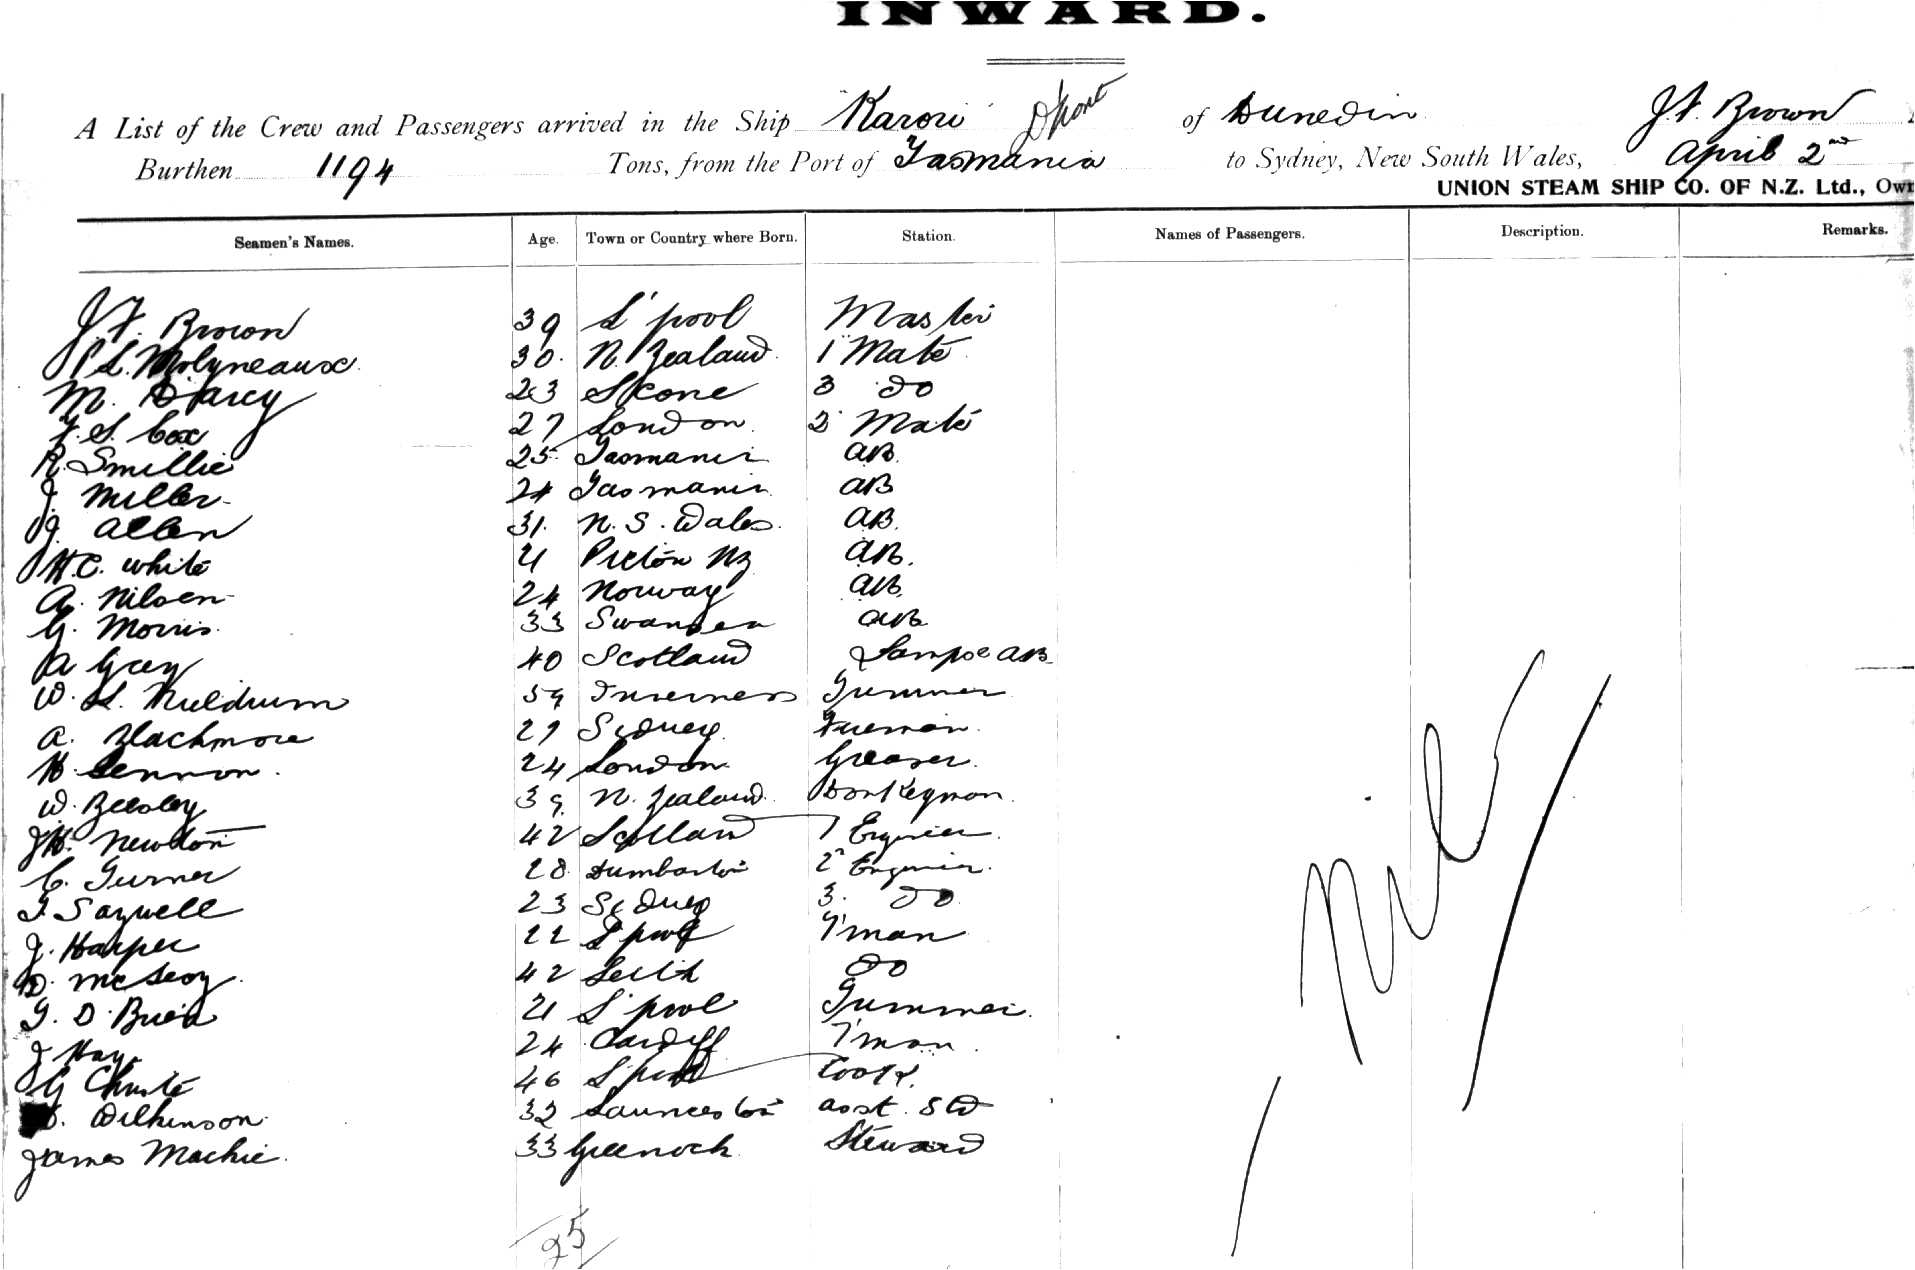 INWARD.
A List of the Crew and Passengers arrived in the Ship "Karori" of Dunedin J. F. Brown
Burthen 1194 Tons, from the Port of Tasmania to Sydney, New South Wales, April 2nd
UNION STEAM SHIP CO. OF N.Z. Ltd., Own
Seamen's Names. Age. Town or Country where Born. Station. Names of Passengers. Description. Remarks.
J. F. Brown 39 L'pool Master
P L. Molyneaux 30. N. Zealand 1 Mate
M. D'Arcy 23 Skone 3 do
F. S. Cox 27 London 2 Mate
R. Smillie 25 Tasmania AB.
J Miller 24 Tasmania AB
J. Allen 31. N. S. Wales. AB.
H. C. White 21 Picton NZ AB.
A. Nilsen 24 Norway AB.
G. Morris. 33 Swansea AB
A Gray 40 Scotland Lamps AB
W. L. Muldrum 59 Inverness Trimmer
A. Blackmore 27 Sydney. Fireman.
H. Lennon. 24 London Greaser.
W. Beesley 39. N. Zealand. Donkeyman.
J H. Newton 42 Scotland 1 Engineer.
C. Turner 28 Dumbarton 2 Engineer.
T. Sazwell 23 Sydney 3. do
J. Harper 22 L'pool F'man
D. McLeoy. 42 Leith do
G. D. 21 L'pool Trimmer.
J Hay. 24 Cardiff F'man.
G Christie 46 L'pool Cook.
Dilkinson. 32 Launceston asst. Std
James Mackie. 33 Greenock Steward
25
Nil